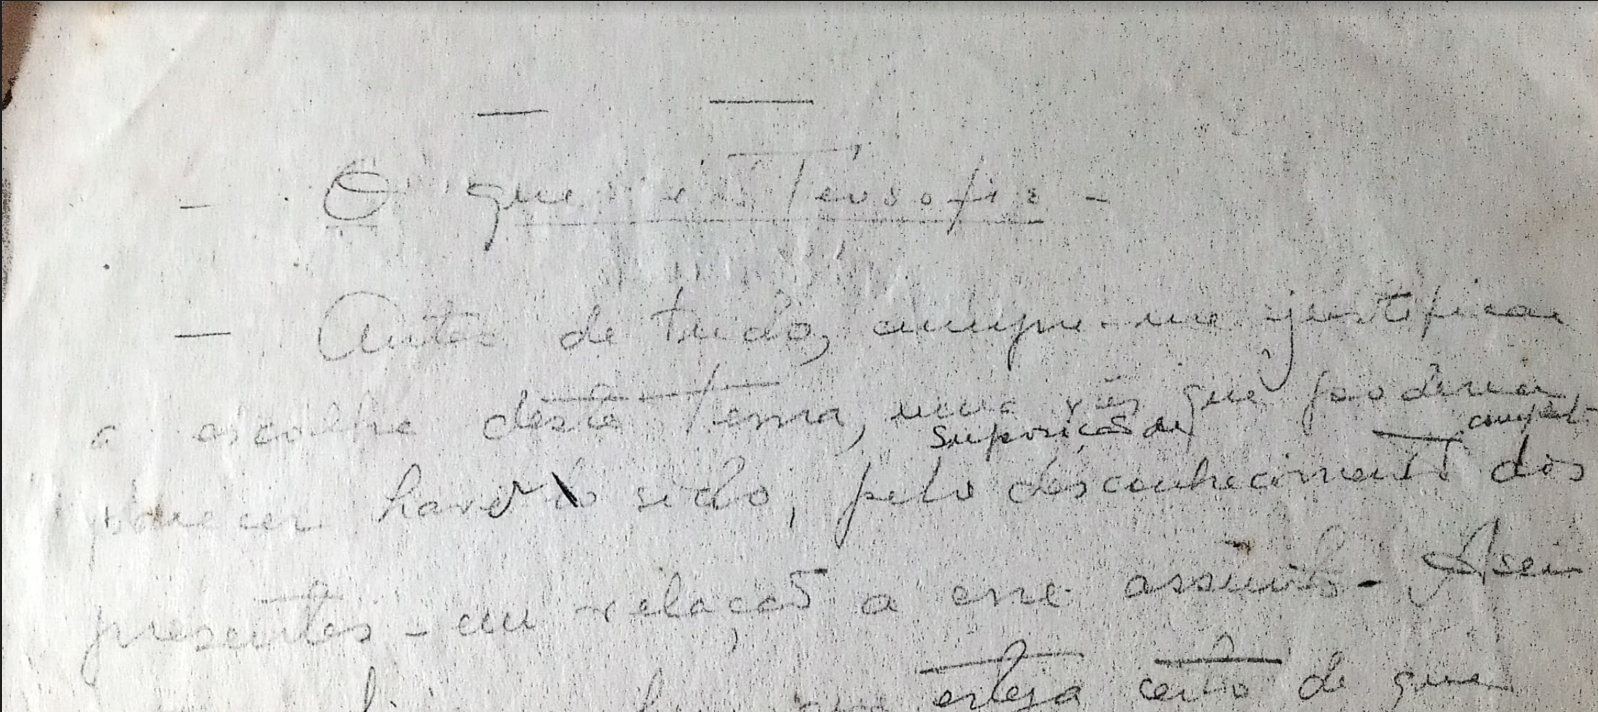 - O que é a Teosofia -
- Antes de tudo, cumpre-me justificar
a escolha deste Tema, uma vês que poderia
suposição de complet
parecer haver sido, pelo desconhecimento dos
presentes - em relação a esse assunto -
esteja certo de que